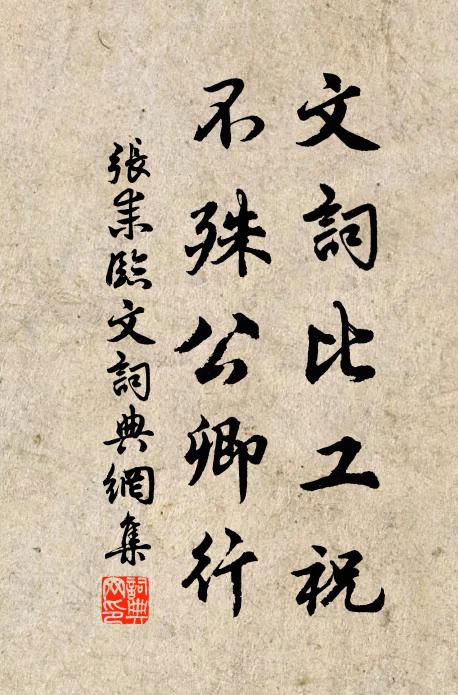 文詞比工祝
不殊公卿行
張耒臨文詞典網集
詞典網印